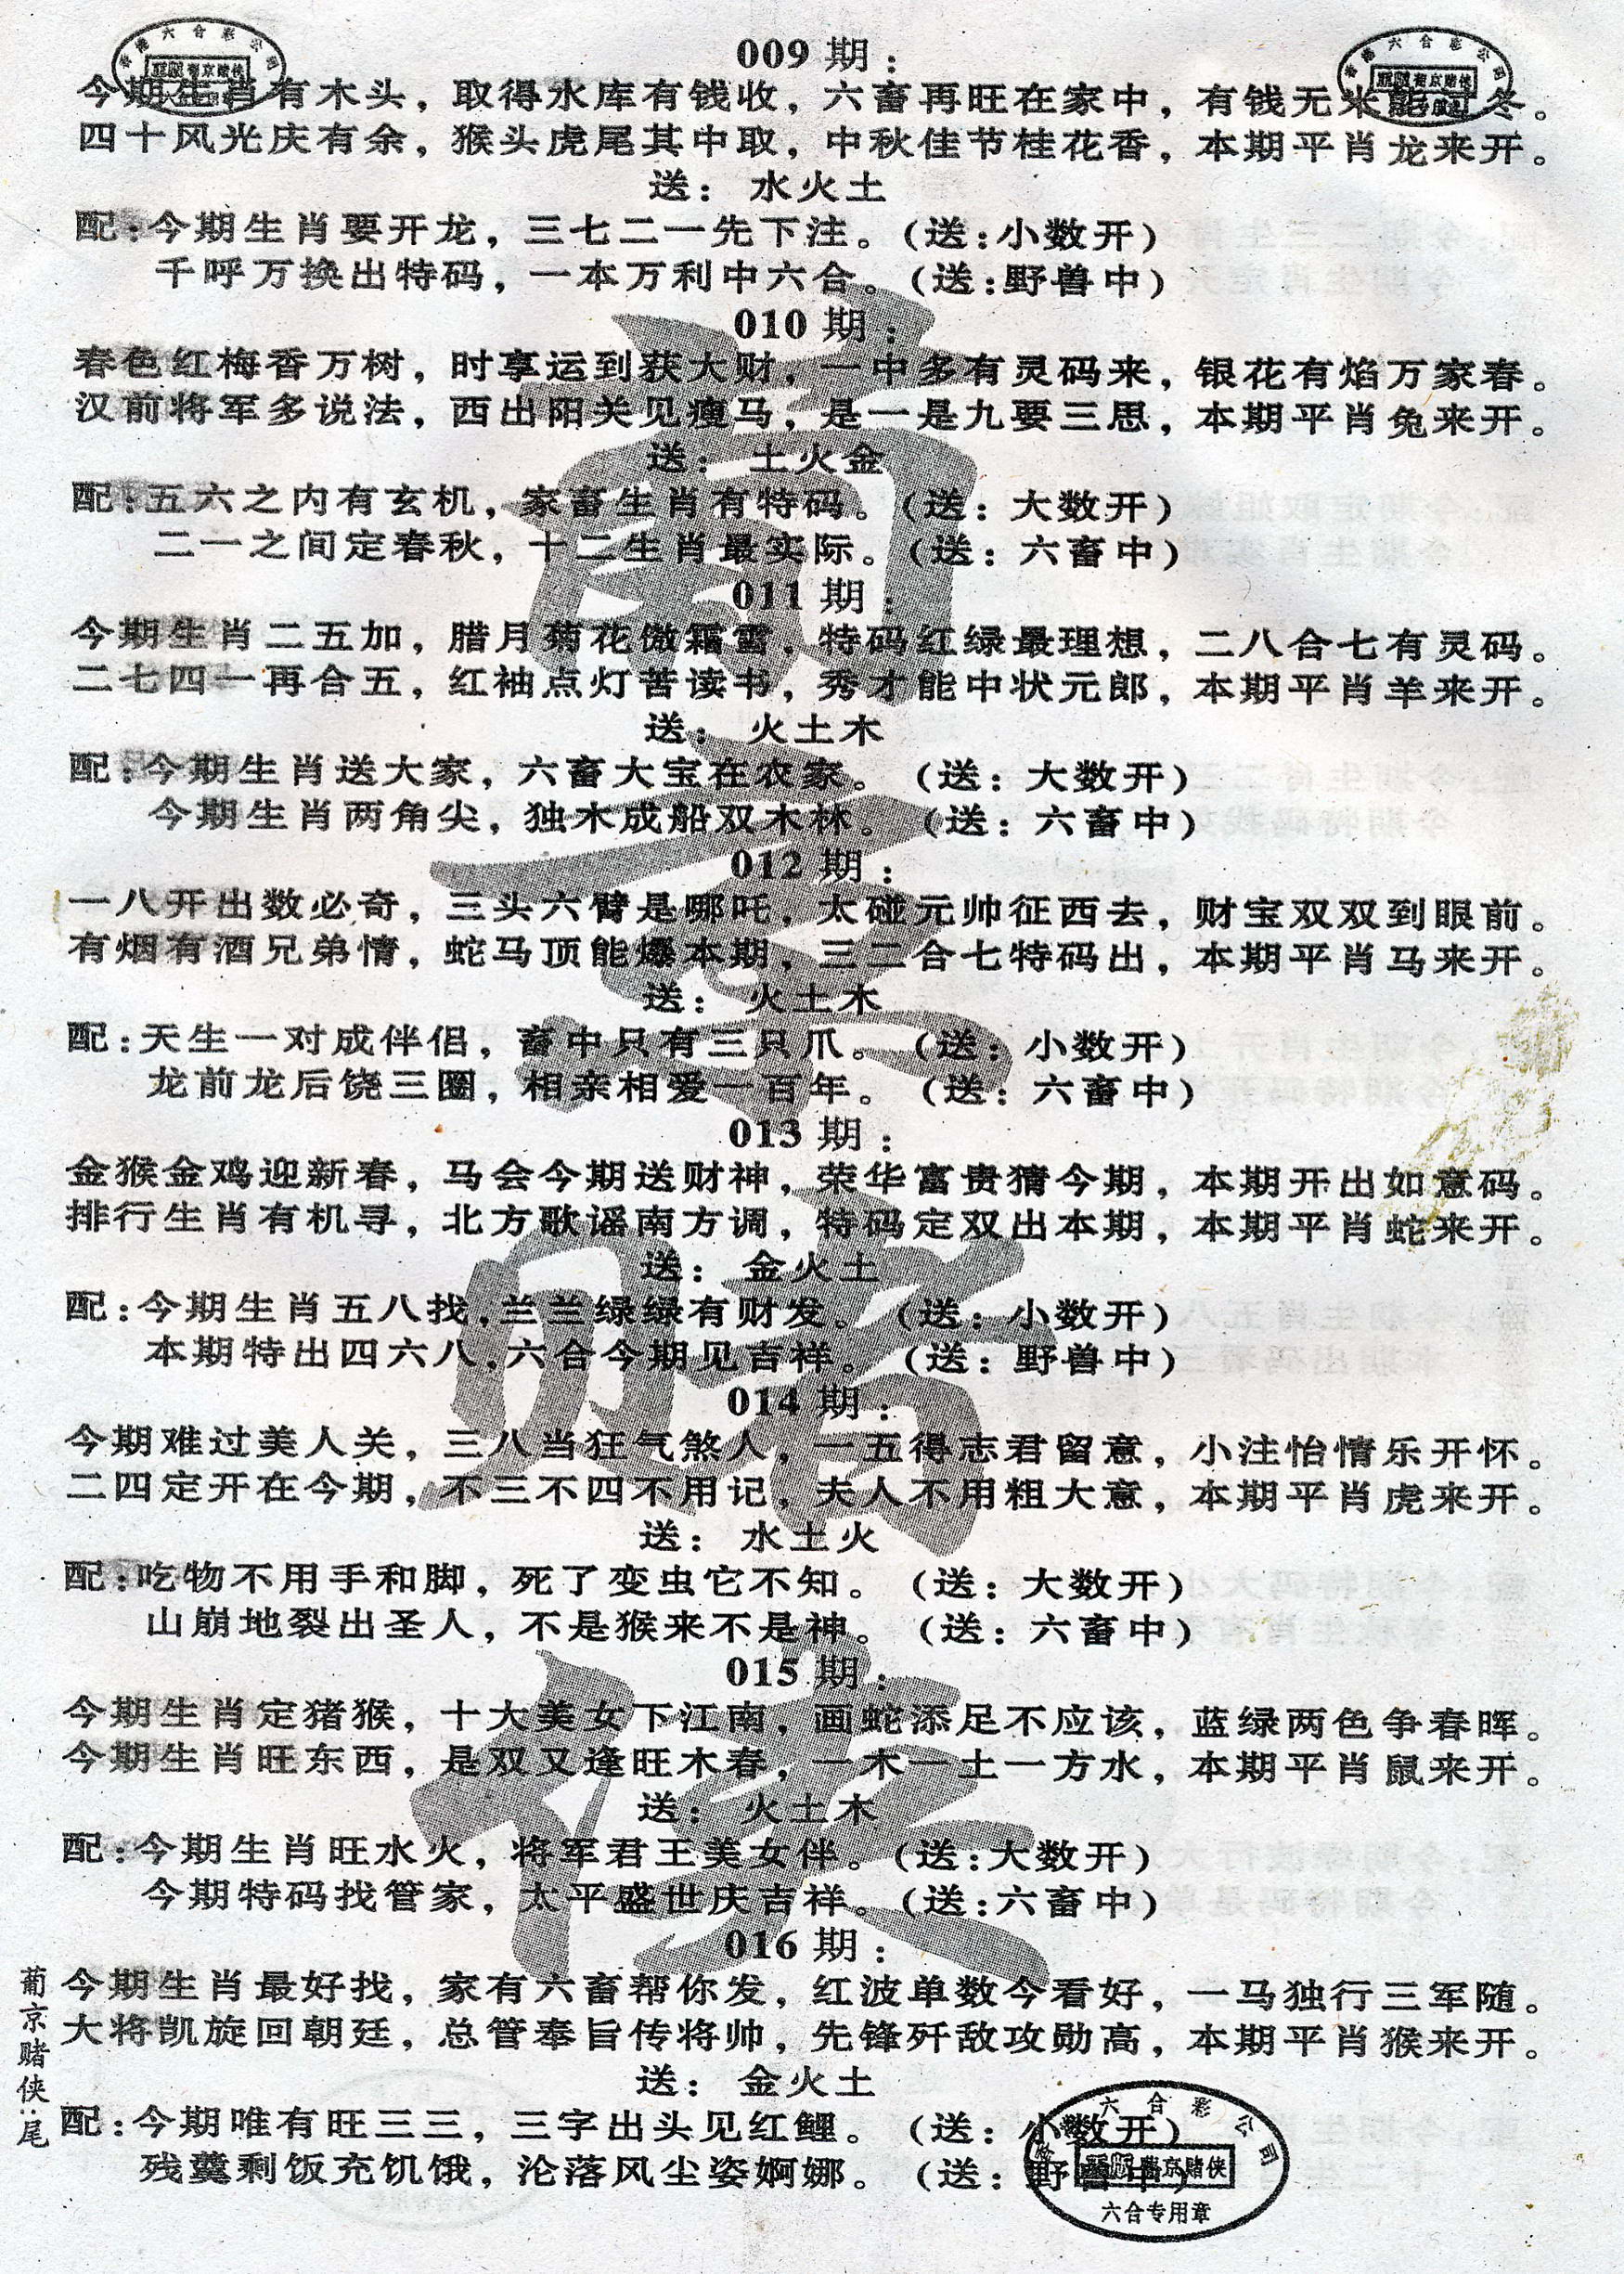 009期：
今期生肖有木头，取得水库有钱收，六畜再旺在家中，有钱无米 冬。
四十风光庆有余，猴头虎尾其中取，中秋佳节桂花香，本期平肖龙来开。
送：水火土
配：今期生肖要开龙，三七二一先下注。（送：小数开）
千呼万换出特码，一本万利中六合。（送：野兽中）
010期：
春色红梅香万树，时享运到获大财，一中多有灵码来，银花有焰万家春。
汉前将军多说法，西出阳关见瘦马，是一是九要三思，本期平肖兔来开。
送：土火金
配：五六之内有玄机，家畜生肖有特码。（送：大数开）
二一之间定春秋，十二生肖最实际。（送：六畜中）
011期：
今期生肖二五加，腊月菊花傲霜雪，特码红绿最理想，二八合七有灵码。
二七四一再合五，红袖点灯苦读书，秀才能中状元郎，本期平肖羊来开。
送：火土木
配：今期生肖送大家，六畜大宝在农家。（送：大数开）
今期生肖两角尖，独木成船双木林。（送：六畜中）
012期：
一八开出数必奇，三头六臂是哪吒，太碰元帅征西去，财宝双双到眼前。
有烟有酒兄弟情，蛇马顶能爆本期，三二合七特码出，本期平肖马来开。
送：火土木
配：天生一对成伴侣，畜中只有三只爪。（送：小数开）
龙前龙后饶三圈，相亲相爱一百年。（送：六畜中）
013期：
金猴金鸡迎新春，马会今期送财神，荣华富贵猜今期，本期开出如意码。
排行生肖有机寻，北方歌谣南方调，特码定双出本期，本期平肖蛇来开。
送：金火土
配：今期生肖五八找，兰兰绿绿有财发。（送：小数开）
本期特出四六八，六合今期见吉祥。（送：野兽中）
014期：
今期难过美人关，三八当狂气煞人，一五得志君留意，小注怡情乐开怀。
二四定开在今期，不三不四不用记，夫人不用粗大意，本期平肖虎来开。
送：水土火
配：吃物不用手和脚，死了变虫它不知。（送：大数开）
山崩地裂出圣人，不是猴来不是神。（送：六畜中）
015期：
今期生肖定猪猴，十大美女下江南，画蛇添足不应该，蓝绿两色争春晖。
今期生肖旺东西，是双又逢旺木春，一木一土一方水，本期平肖鼠来开。
送：火土木
配：今期生肖旺水火，将军君王美女伴。（送：大数开）
今期特码找管家，太平盛世庆吉祥。（送：六畜中）
016期：
今期生肖最好找，家有六畜帮你发，红波单数今看好，一马独行三军随。
大将凯旋回朝廷，总管奉旨传将帅，先锋歼敌攻勋高，本期平肖猴来开。
送：金火土
配：今期唯有旺三三，三字出头见红鲤。（送：小数开）
残羹剩饭充饥饿，沦落风尘姿婀娜。（送：野兽中）
葡京赌侠：尾
六合彩公司
葡京赌侠
六合专用章